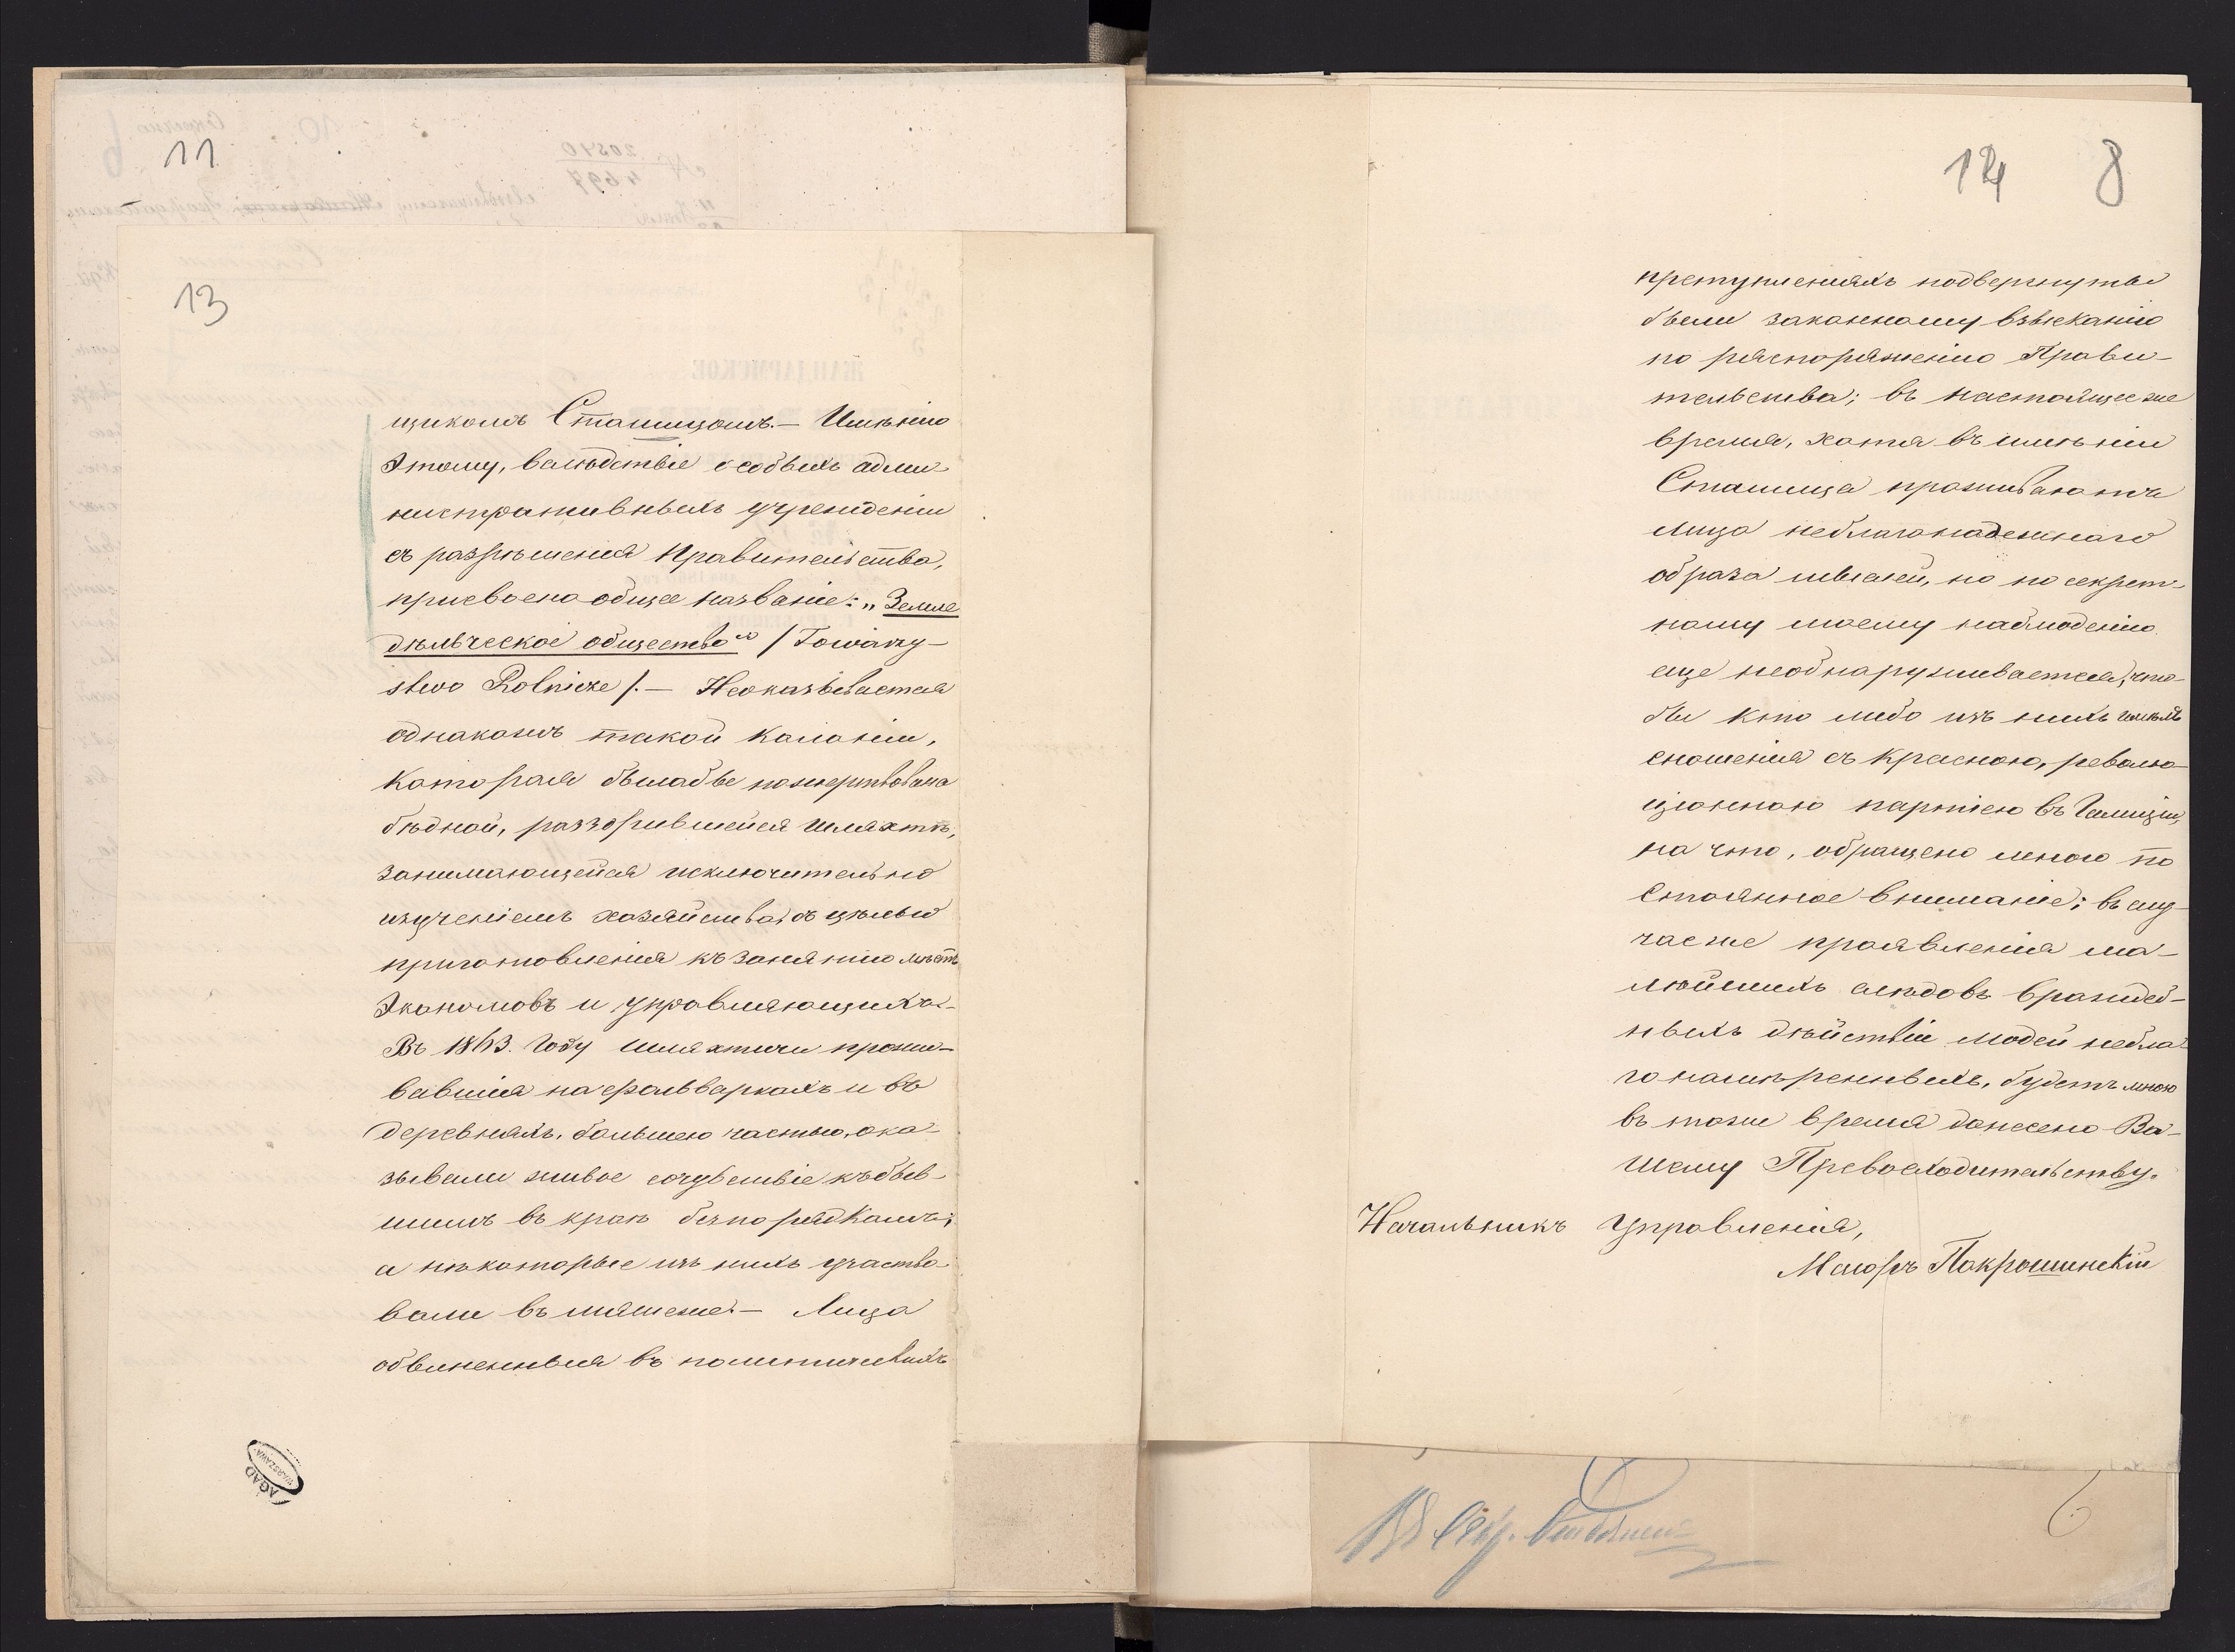 11
13
щикомъ Сташицомъ. – Имѣнію
этому, вслѣдствіе особыхъ адми
нистративныхъ учрежденіи
съ разрѣшенія Правительства,
присвоено общее названіе: „Земле
дѣльческое общество“ / Towarzy–
stwo Rolnicze /. – Неоказывается
однакожъ такой колоніи,
которая былабы пожертвована
бѣдной, раззорившейся шляхтѣ,
занимающейся исключительно
изученіемъ хозяйства, съ цѣлью
приготовленія къ занятію мѣстъ
Экономовъ и управляющихъ. –
Въ 1863. Году шляхтичи прожи–
вавшія на фольваркахъ и въ
деревняхъ, большею частью, ока–
зывали живое сочувствіе къ быв–
шимъ въ краѣ безпорядкамъ;
а нѣкоторые изъ нихъ участво–
вали въ мятеже. – Лица
обвиненныя въ политическихъ
AGAD
WARSZAWA
14 8
преступленіяхъ подвергнуты
были законному взысканію
по распоряженію Прави–
тельства; въ настоящее же
время, хотя въ имѣніи
Сташица проживаютъ
лица неблагонадежнаго
образа мыслей, но по секрет–
ному моему наблюденію
еще необнаруживается, что–
бы кто либо изъ нихъ имѣлъ
сношенія съ красною, револю–
ціонною партіею въ Галиціи,
на что, обращено мною по
стоянное вниманіе; въ слу–
чае же проявленія ма–
лѣйшихъ слѣдовъ враждеб–
ныхъ дѣйствіи людей небла–
гонамѣренныхъ, будетъ мною
въ тоже время донесено Ва–
шему Превосходительству.
Начальникъ Управленія,
Маіоръ Покрошинскій
6